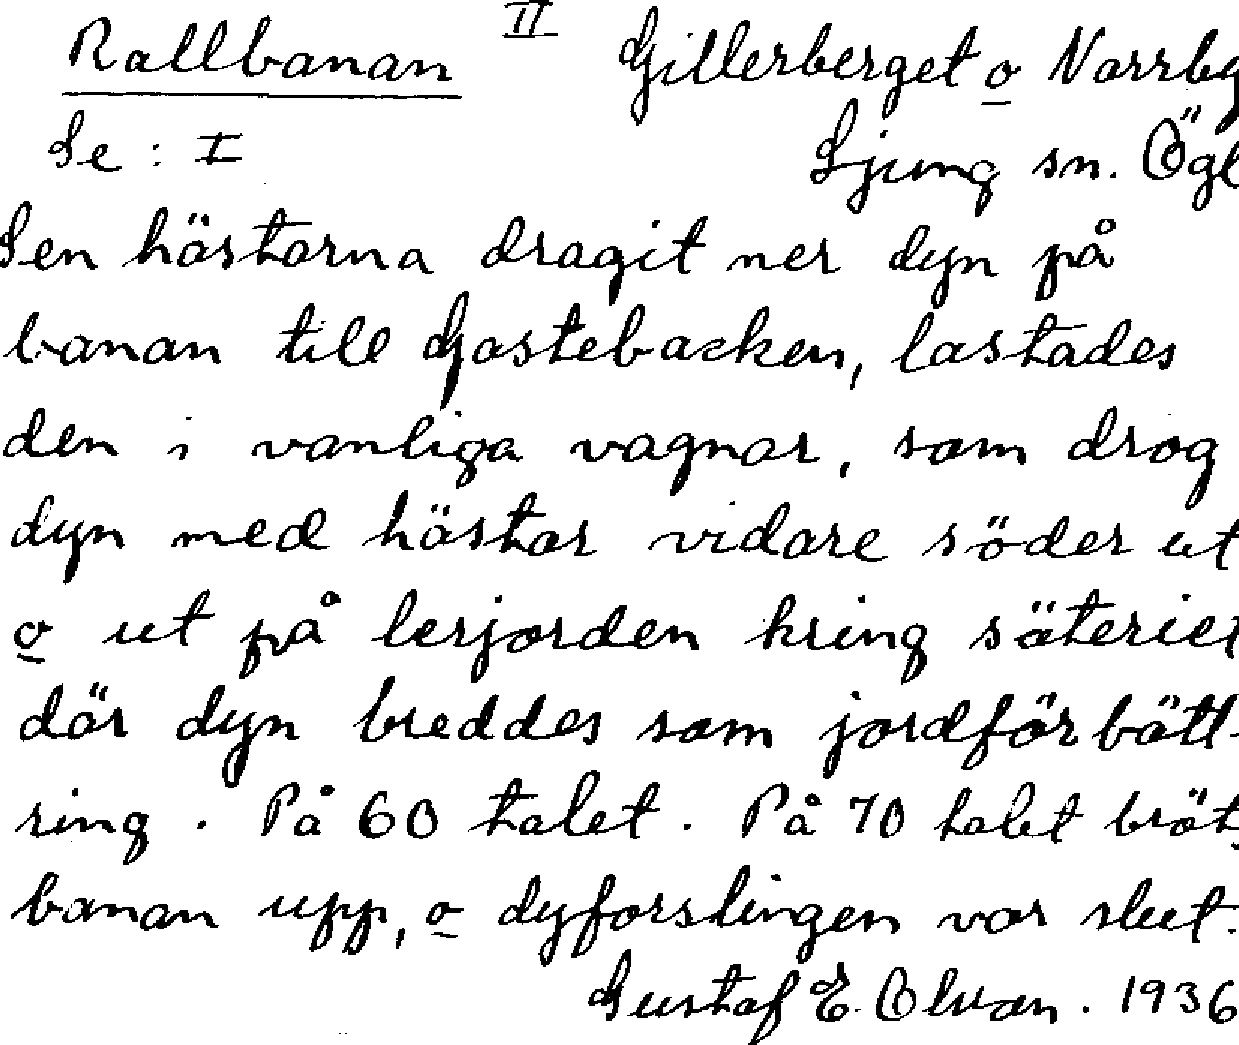 Rallbanan II Gillerberget o Norrby
Se : I Ljung sn. Ögl
Sen hästarna dragit ner dyn på
banan till Gastebacken, lastades
den i vanliga vagnar, som drog
dyn med hästar vidare söder ut
o ut på lerjorden kring säteriet
där dyn breddes som jordförbätt-
ring. På 60 talet. På 70 talet bröts
banan upp, o dyforslingen var slut.
Gustaf E. Olvan. 1936